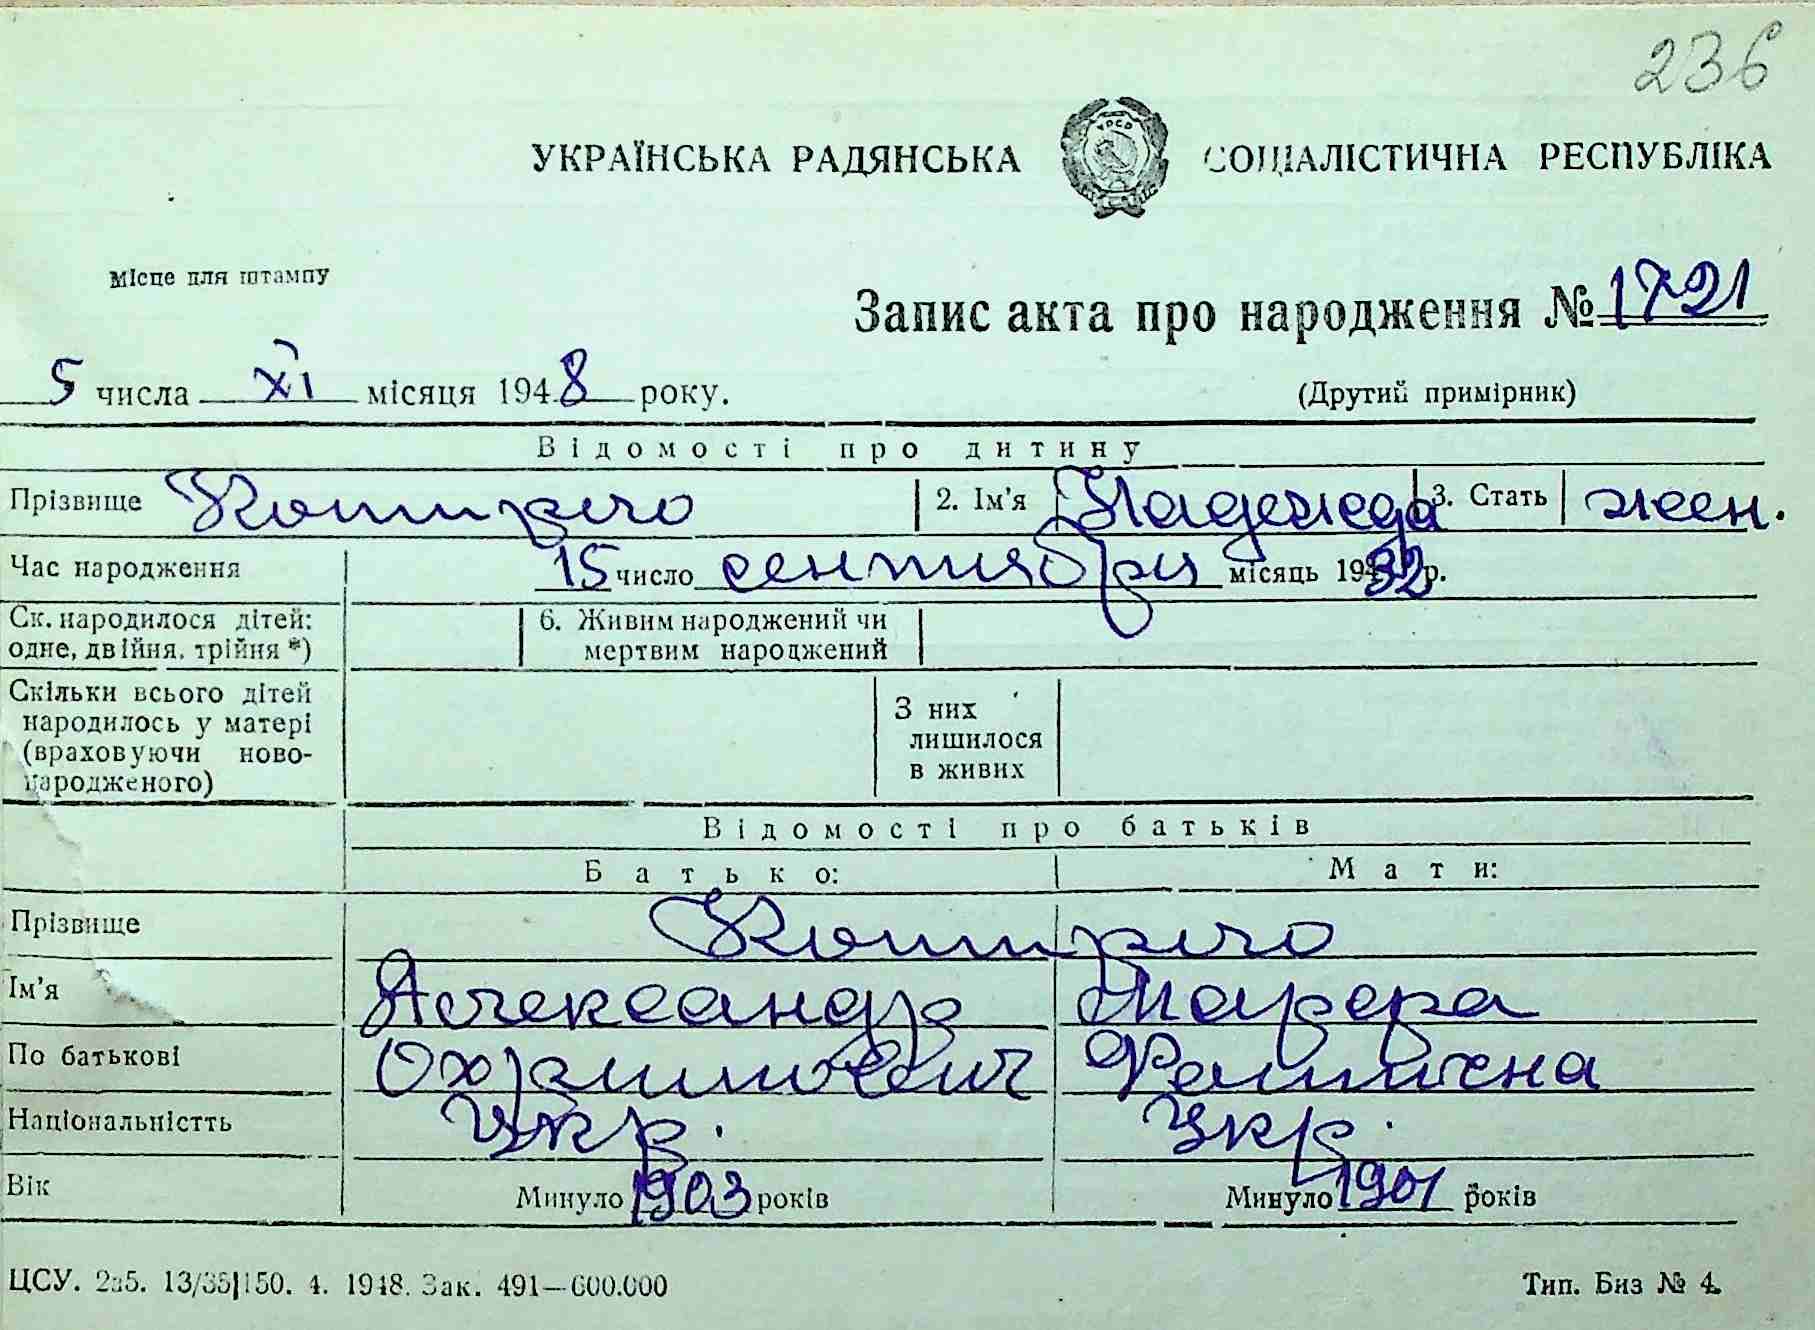 236
УКРАЇНСЬКА РАДЯНСЬКА СОЦІАЛІСТИЧНА РЕСПУБЛІКА
УРСР
Місце для штампу
Запис акта про народження № 1721
5 числа XI місяця 1948 року.
(Другий примірник)
Відомості про дитину
Прізвище 2. Ім'я Надежда 3. Стать жен.
Час народження 15 число сентября місяць 1932 р.
Ск. народилося дітей: одне, двійня, трійня *) 6. Живим народжений чи мертвим народжений
Скільки всього дітей народилось у матері (враховуючи ново-народженого) З них лишилося в живих
Відомості про батьків
Батько: Мати:
Прізвище
Ім'я Александр Марфа
По батькові Охримович
Національністть Укр. Укр.
Вік Минуло 1903 років Минуло 1901 років
ЦСУ. 2а5. 13/35|150. 4. 1948. Зак. 491—600.000 Тип. Биз № 4.